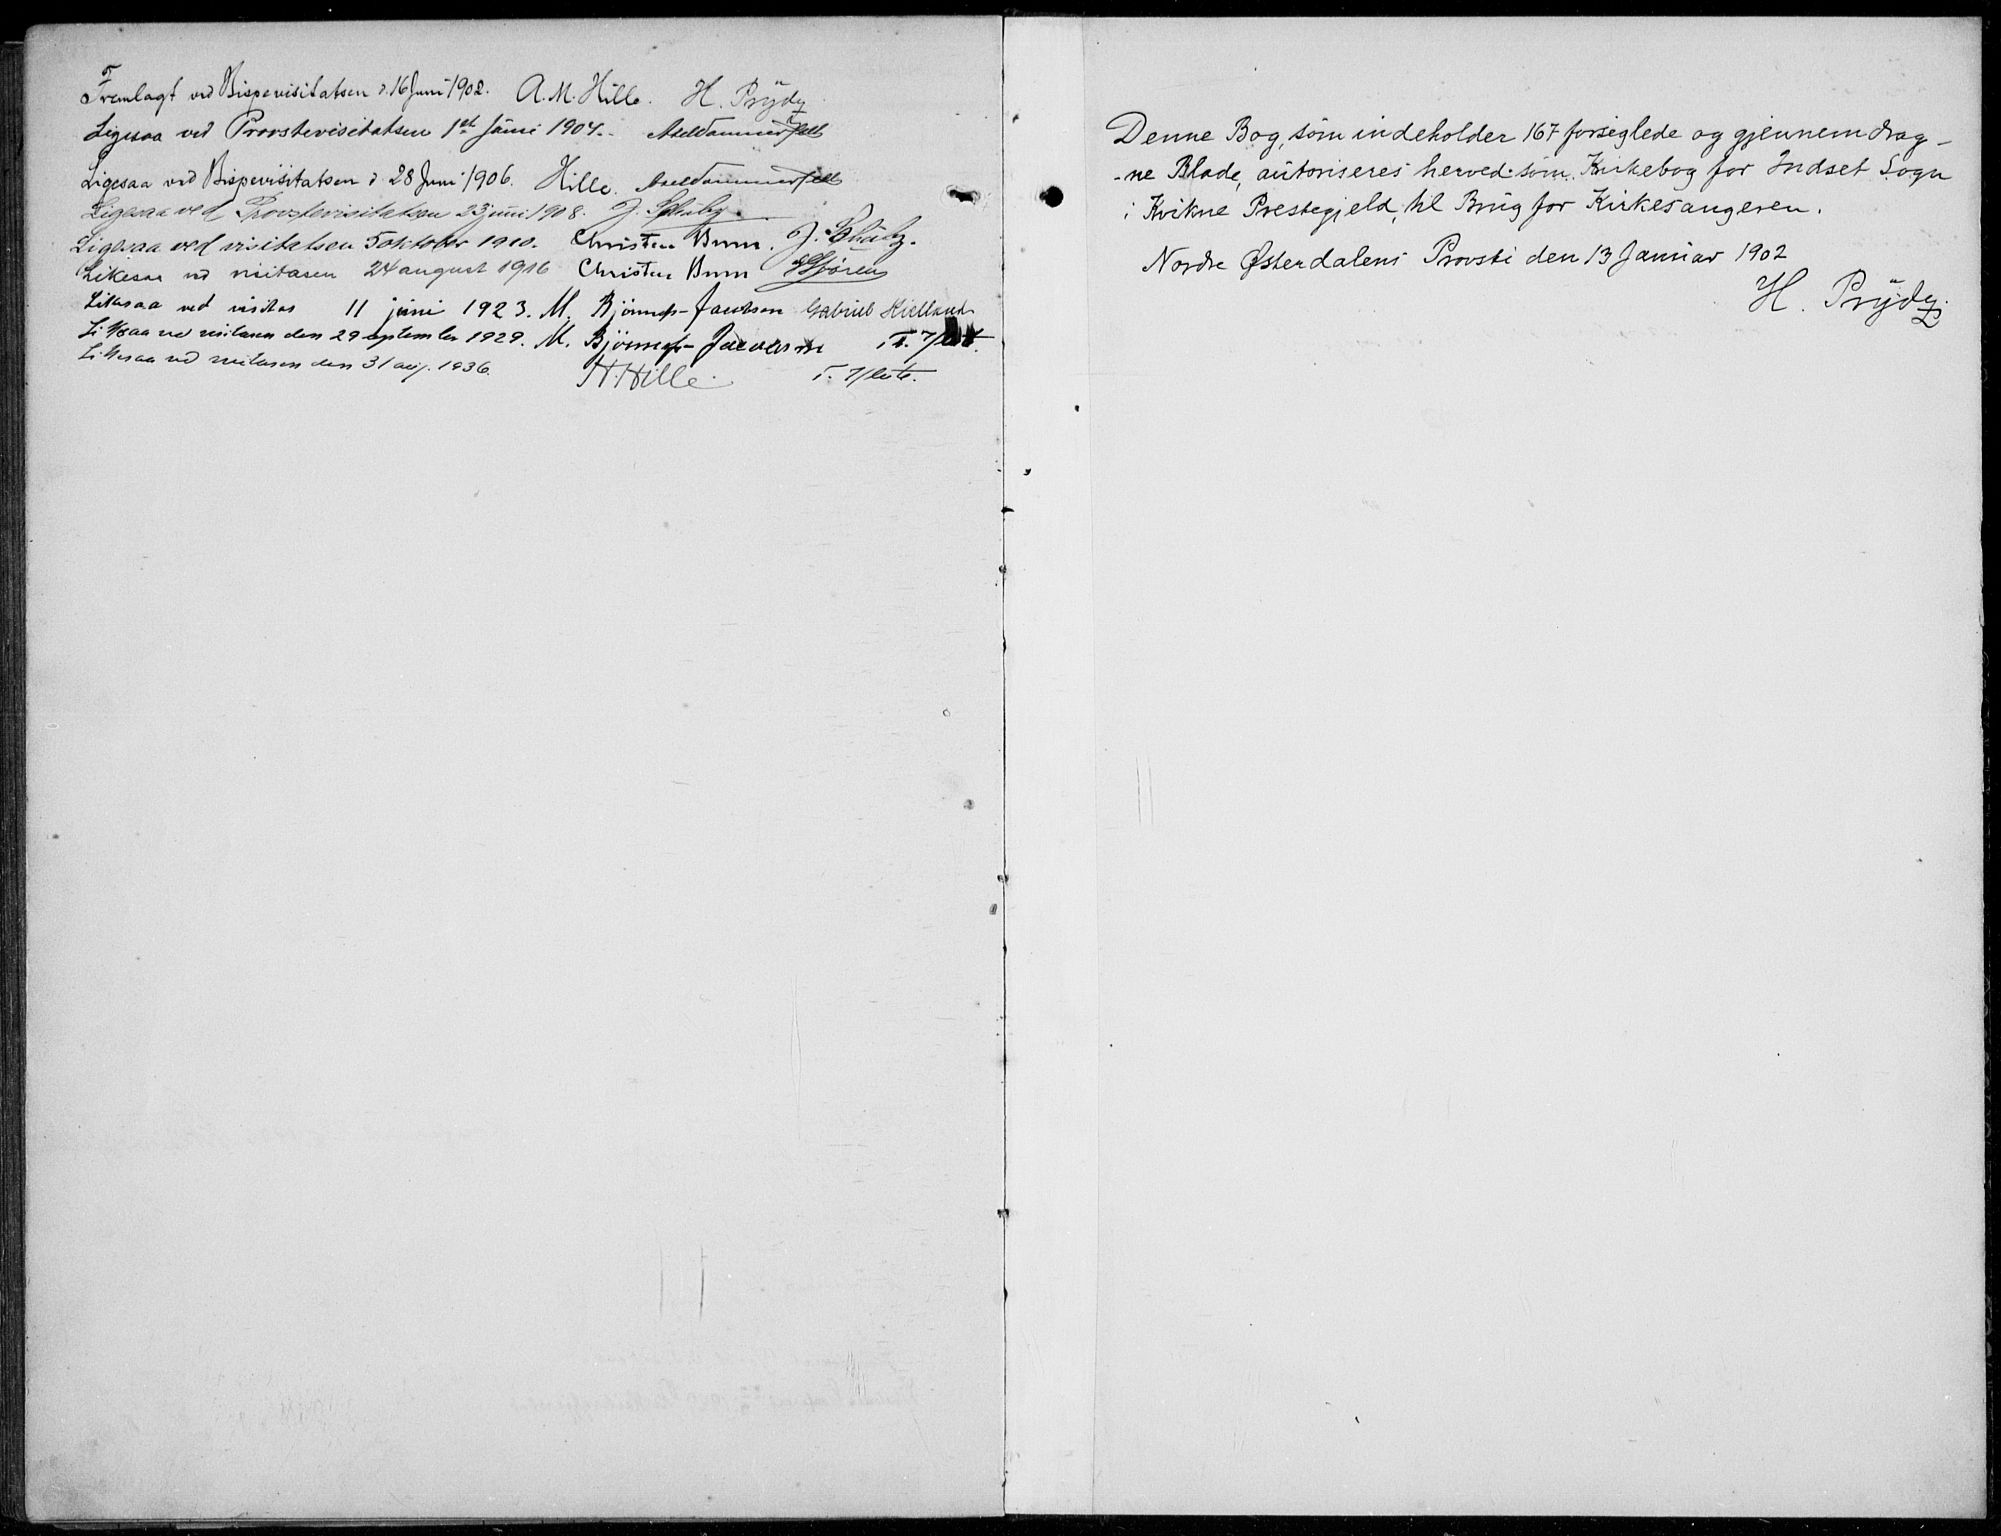 Fremlagt ved Bispevisitatsen d. 16 Juni 1902. A. M. Hille. H. Prÿdz
Ligesaa ved Provstevisitatsen 1st Jŭni 1904.
Ligesaa ved Bispevisitatsen d 28 Juni 1906. Hille.
Ligesaa ved Provstevisitatsen 23 juni 1908. J.
Ligesaa ved visitatsen 5 oktober 1910. Christen Brun. J.
Likesaa ved visitasen 24 august 1916 Christen Brun
Likesaa ved visitas 11 juni 1923. M. Bjønness-Jacobsen Gabriel Kielland
Likesaa ved visitasen den 29 september 1929. M. Bjønness-Jacobsen T.
Likesaa ved visitasen den 31 aug. 1936. H. Hille. T.
Denne Bog, sŏm indeholder 167 forseglede og gjennemdrag-
-ne Blade, aŭtoriseres herved som Kirkebog for Indset Sogn
i Kvikne Prestegjeld, til Brŭg for Kirkesangeren.
Nordre Østerdalens Provsti den 13 Januar 1902
H. Prÿdz.